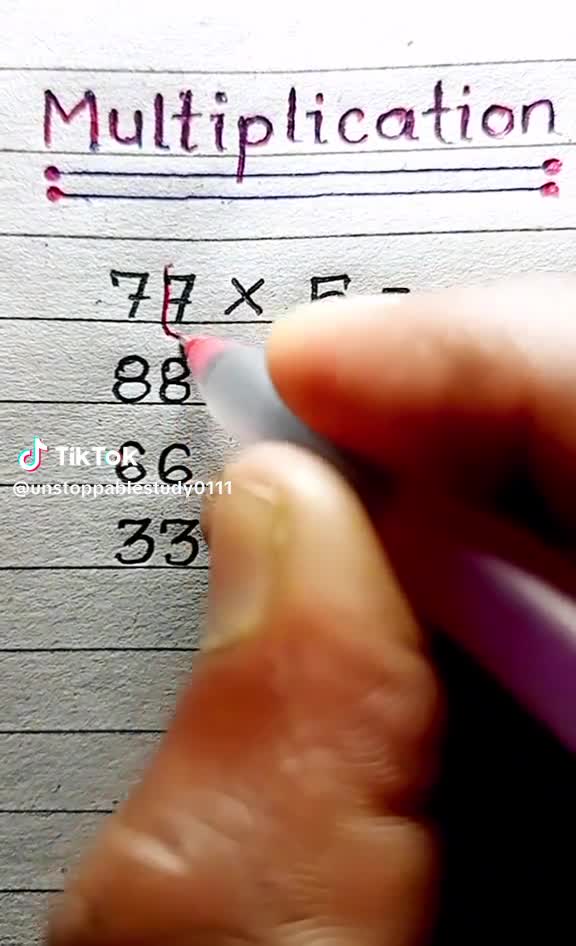 Multiplication
77 × 5 =
88
66
33
TikTok
@unstoppablestudy0111